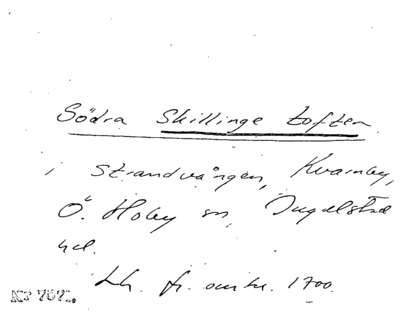 Södra Skillinge toften
i Strandvången, Kvarnby,
Ö. Hoby sn, Ingelstad
hd.
Lh. fr. omkr. 1700.